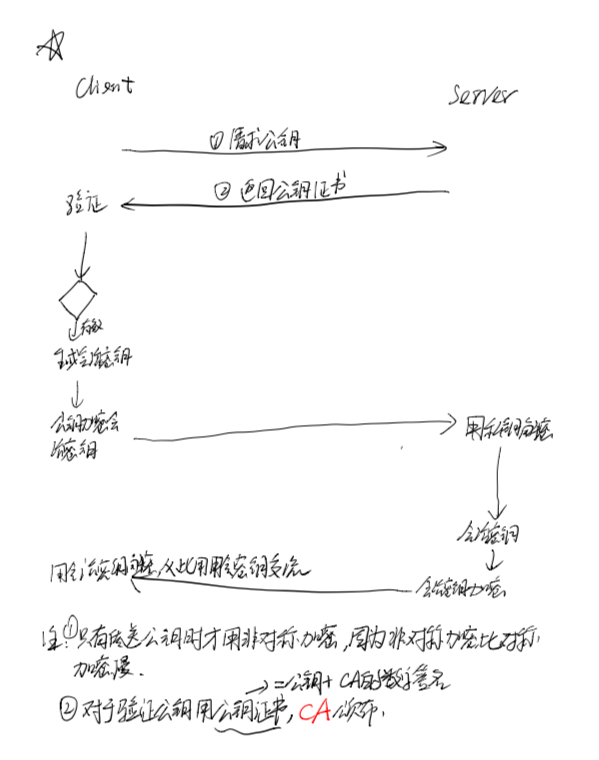 Client
Server
①请求公钥
②返回公钥证书
验证
有效
生成会话密钥
公钥加密会
话密钥
用私钥解密
会话密钥
会话密钥加密
用会话密钥解密,从此用用会密钥交流
注:①只有传送公钥时才用非对称加密,因为非对称加密比对称
加密慢.
→=公钥+CA的数字签名
②对于验证公钥用公钥证书,CA颁布.